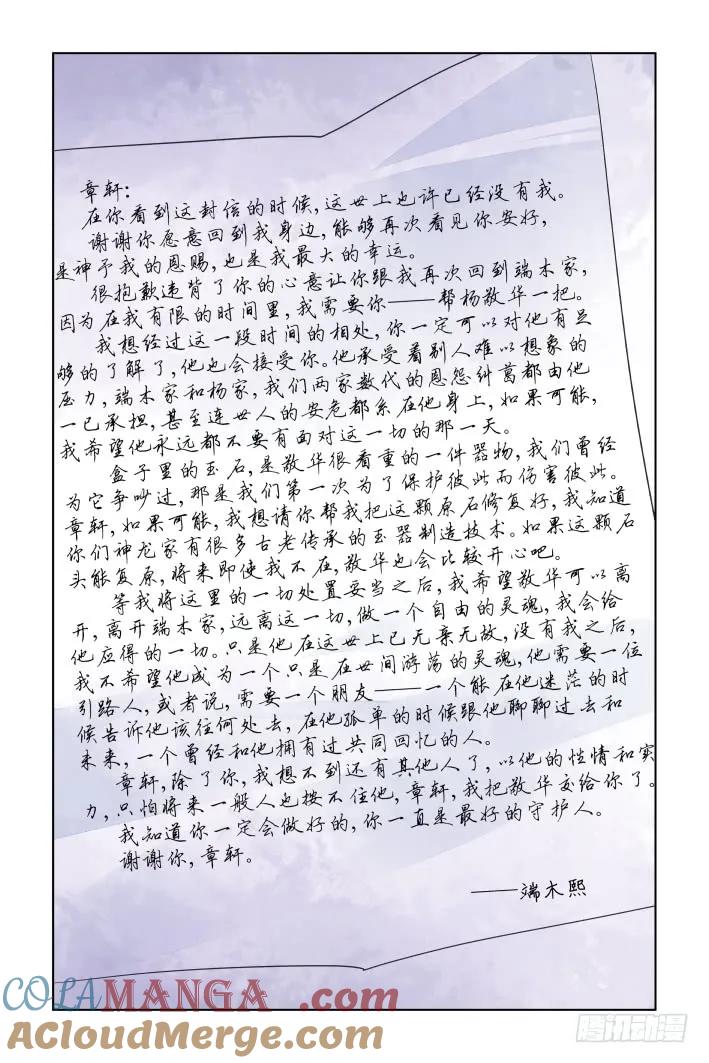 章轩:
在你看到这封信的时候,这世上也许已经没有我。
谢谢你愿意回到我身边,能够再次看见你安好,
是神予我的恩赐,也是我最大的幸运。
很抱歉违背了你的心意让你跟我再次回到端木家,
因为在我有限的时间里,我需要你——帮杨敬华一把。
我想经过这一段时间的相处,你一定可以对他有足
够的了解了,他也会接受你。他承受着别人难以想象的
压力,端木家和杨家,我们两家数代的恩怨纠葛都由他
一己承担,甚至连世人的安危都系在他身上,如果可能,
我希望他永远都不要有面对这一切的那一天。
盒子里的玉石,是敬华很看重的一件器物,我们曾经
为它争吵过,那是我们第一次为了保护彼此而伤害彼此。
章轩,如果可能,我想请你帮我把这颗原石修复好,我知道
你们神龙家有很多古老传承的玉器制造技术。如果这颗石
头能复原,将来即使我不在,敬华也会比较开心吧。
等我将这里的一切处置妥当之后,我希望敬华可以离
开,离开端木家,远离这一切,做一个自由的灵魂,我会给
他应得的一切。只是他在这世上已无亲无故,没有我之后,
我不希望他成为一个只是在世间游荡的灵魂,他需要一位
引路人,或者说,需要一个朋友——一个能在他迷茫的时
候告诉他该往何处去,在他孤单的时候跟他聊聊过去和
未来,一个曾经和他拥有过共同回忆的人。
章轩,除了你,我想不到还有其他人了,以他的性情和实
力,只怕将来一般人也按不住他,章轩,我把敬华交给你了。
我知道你一定会做好的,你一直是最好的守护人。
谢谢你,章轩。
——端木熙
COLAMANGA.com
ACloudMerge.com
腾讯动漫